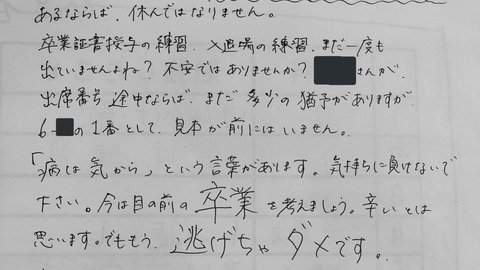 あるならば、休んではなりません。
卒業証書授与の練習、入退場の練習、まだ一度も
出ていませんよね？不安ではありませんか？さんが、
出席番号途中ならば、まだ多少の猶予がありますが、
6-の1番として、見本が前にはいません。
「病は気から」という言葉があります。気持ちに負けないで
下さい。今は目の前の卒業を考えましょう。辛いとは
思います。でももう、逃げちゃダメです。